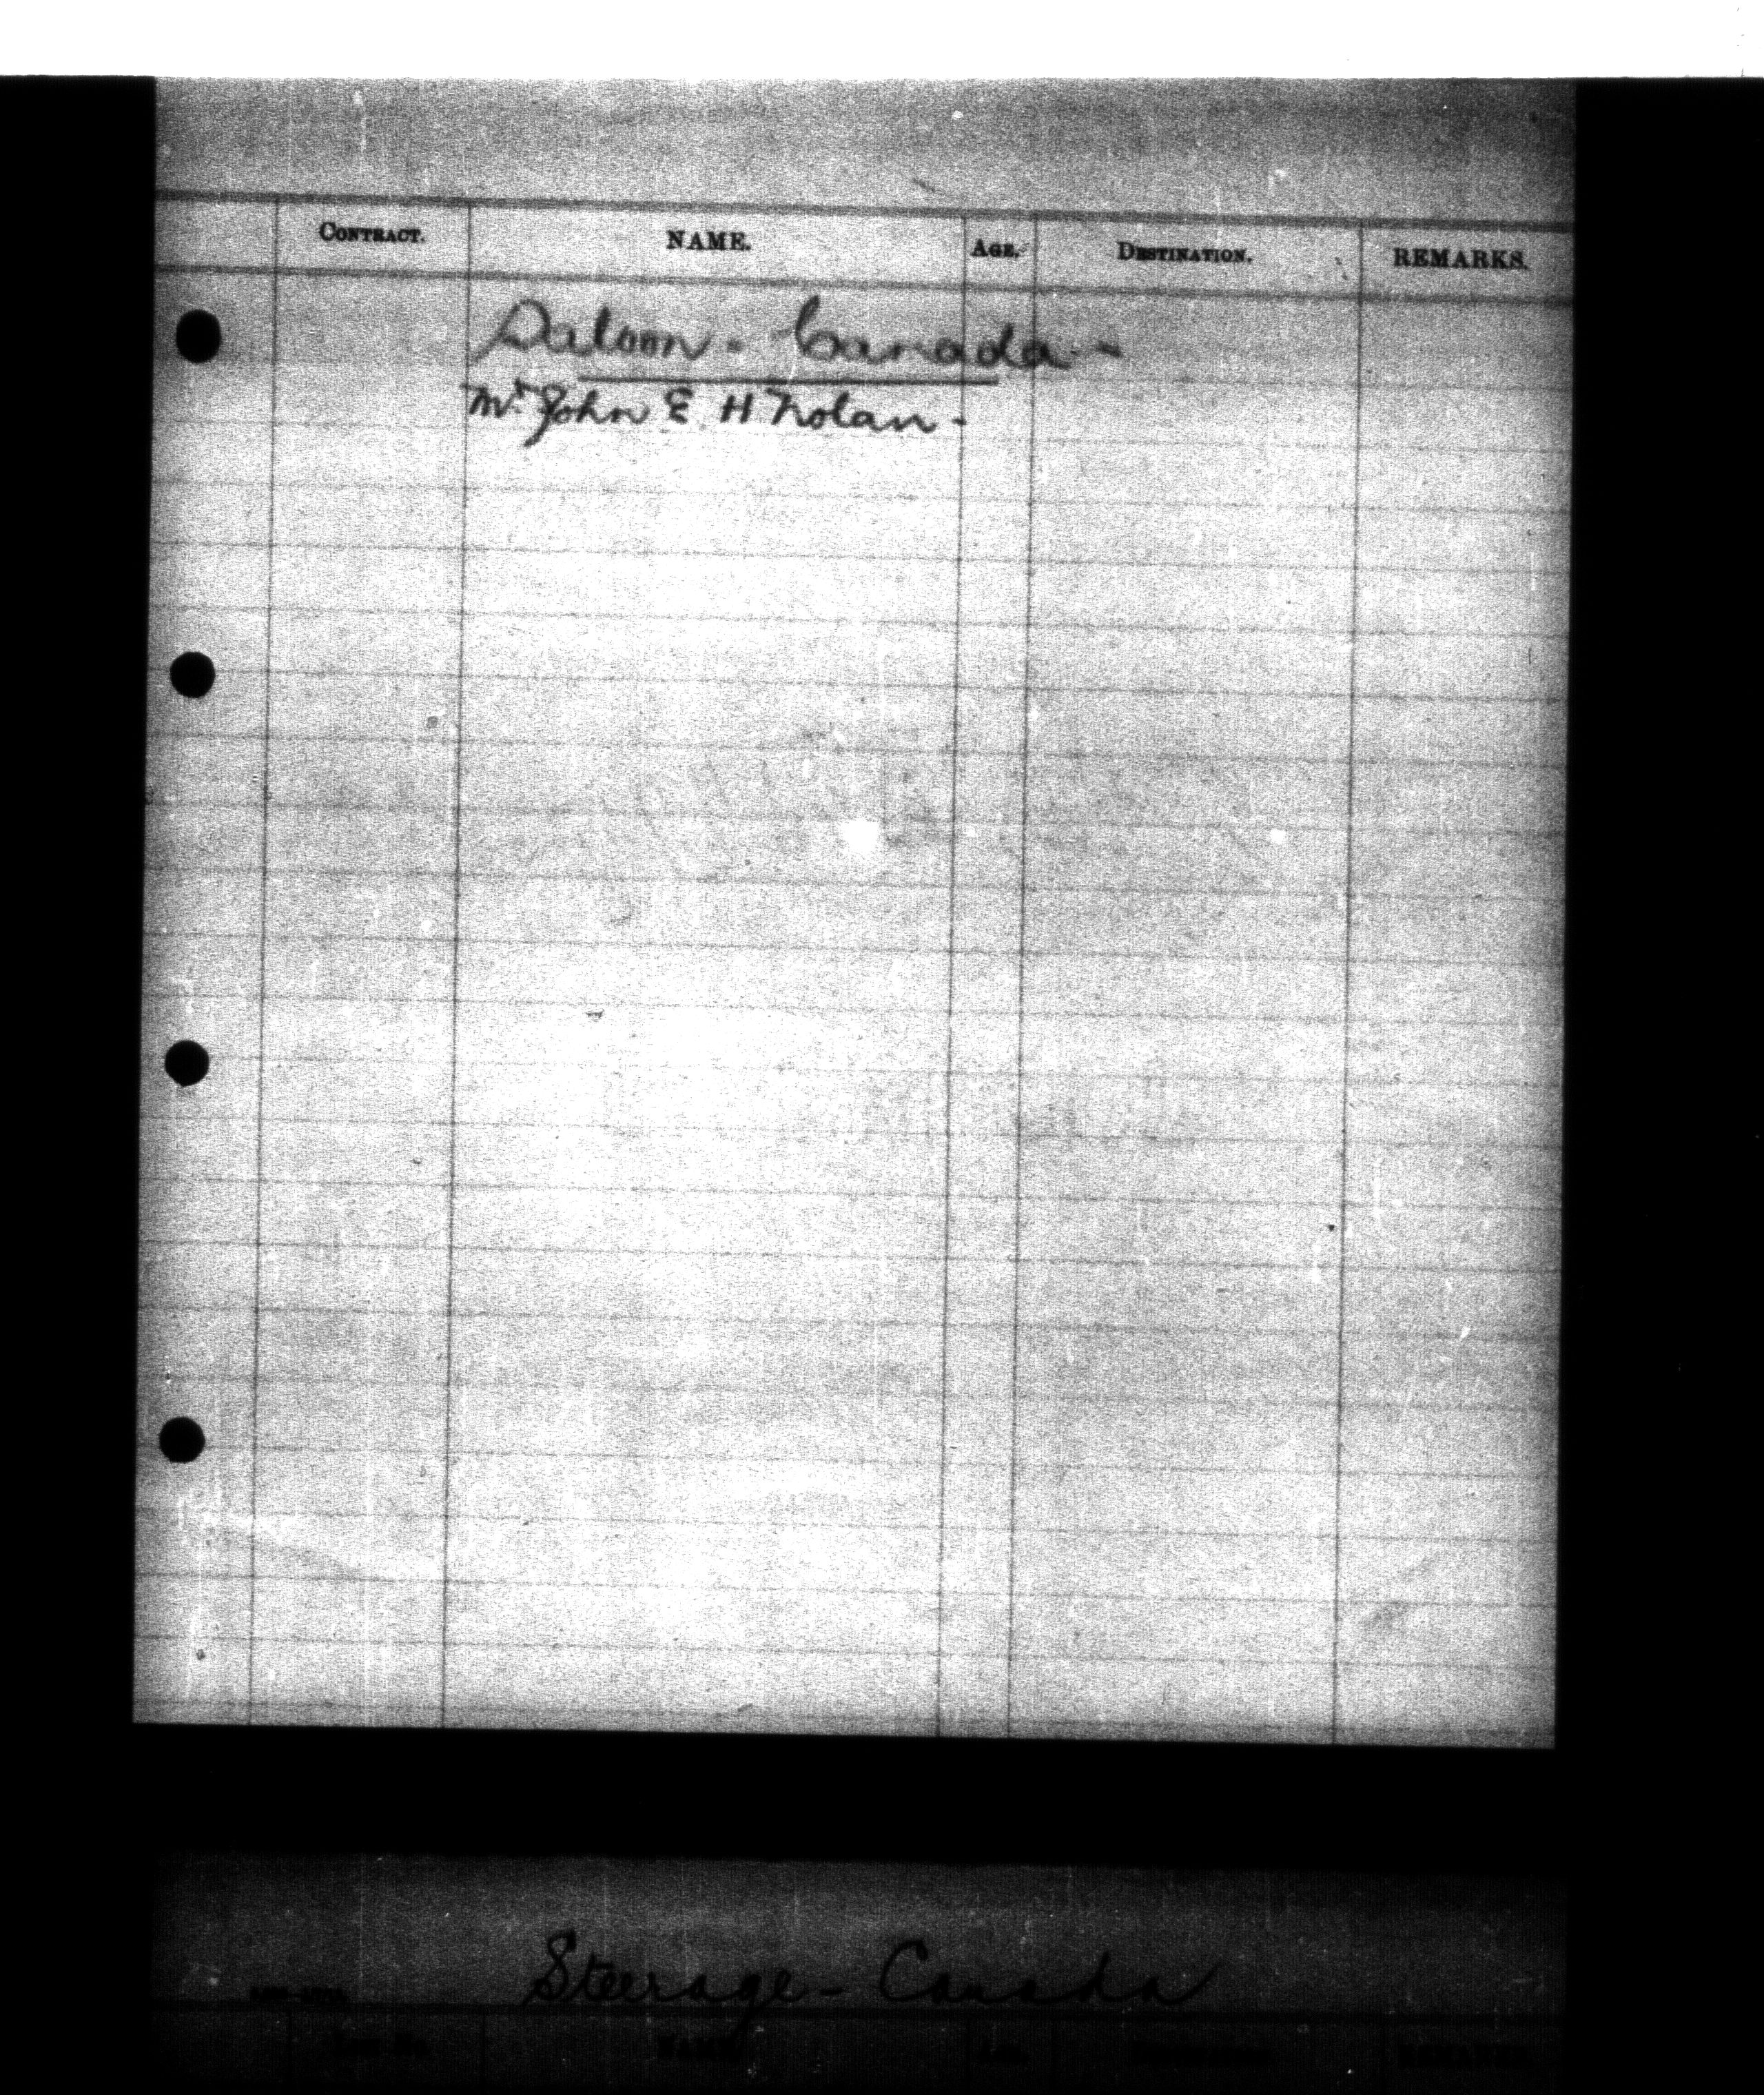 CONTRACT. NAME. AGE. DESTINATION. REMARKS.
Saloon - Canada -
Mr. John E. H Nolan -
Steerage - Canada
NAME